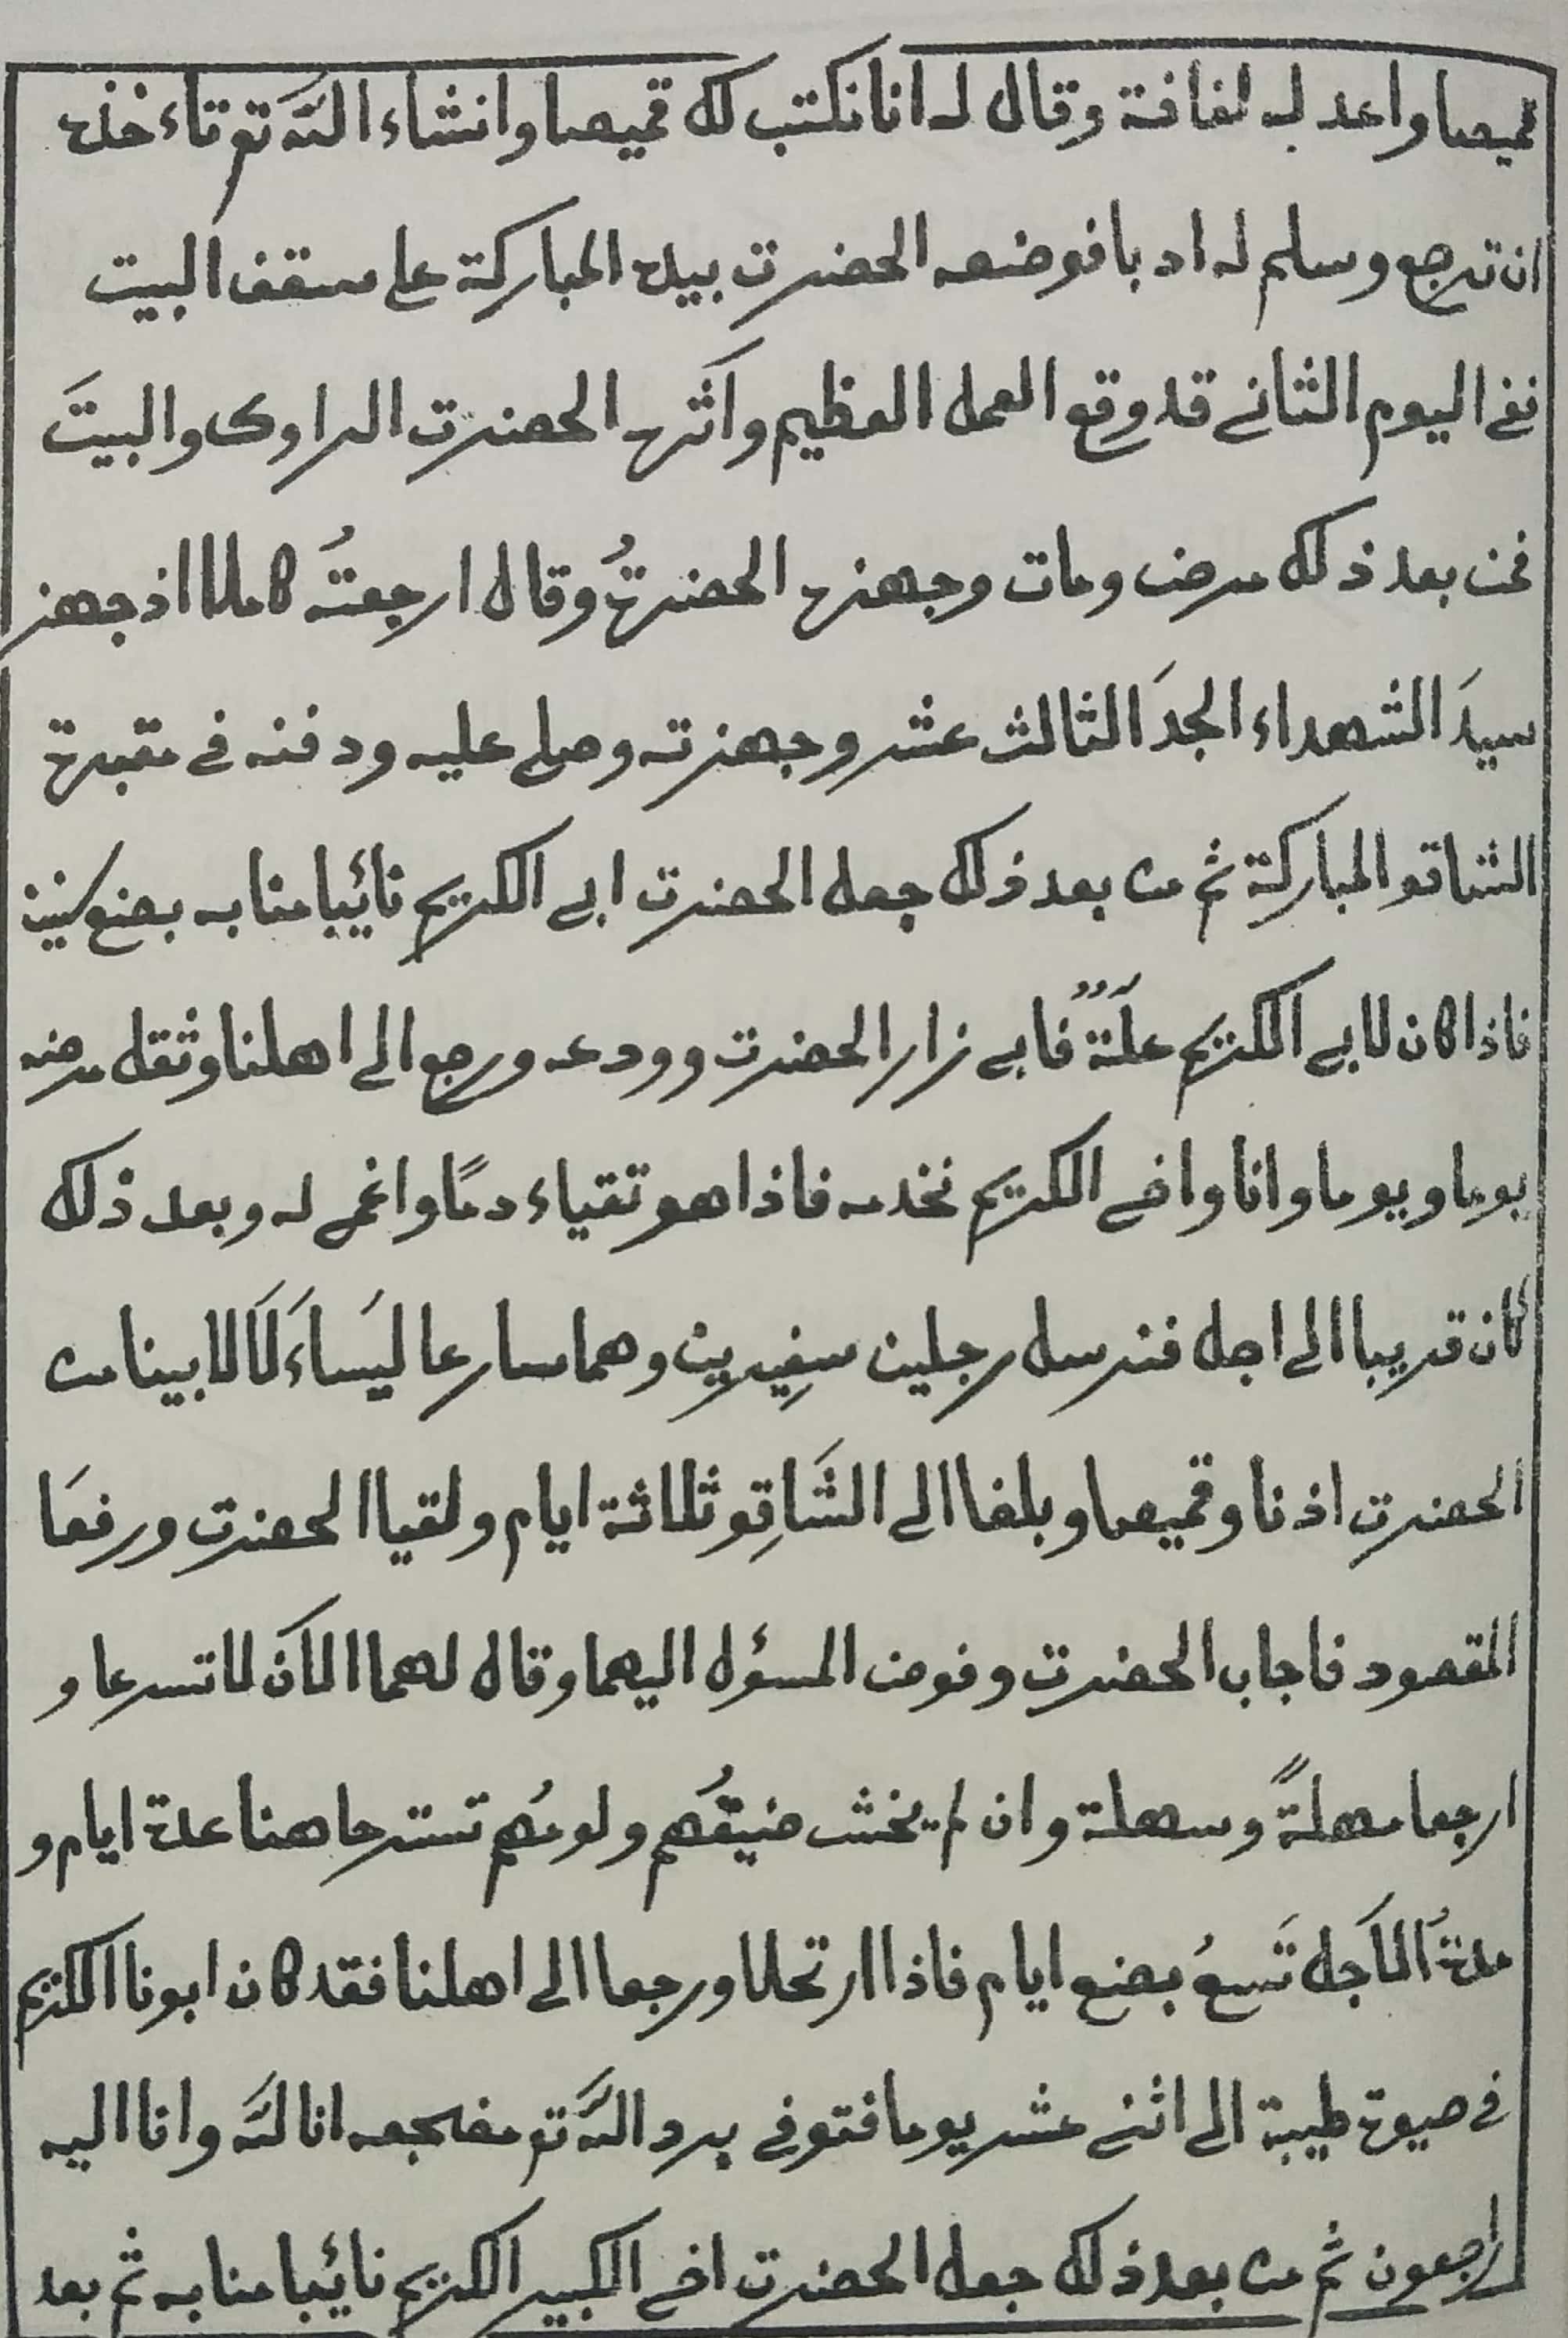 قميصا واعد له لفافة وقال له انا نكتب لك قميصا وانشاء اللّه تع تاءخذه
ان ترجع وسلم له ادبا فوضعه الحضرت بيده المباركة على سقف البيت
ففي اليوم الثاني قد وقع العمل العظيم واثره الحضرت الراوى والبيتَ
فمن بعد ذلك مرض ومات وجهزه الحضرتُ وقال ارجعتُه كاملا اذ جهز
سيدَ الشهداء الجدَ الثالث عشر وجهزته وصلى عليه ودفنه في مقبرة
الشاقو المباركة ثم من بعد ذلك جعل الحضرت ابي الكريم نائبا منابه بضع سنين
فاذا كان لابي الكريم علّةٌ فابي زار الحضرت وودعه ورجع الى اهلنا وثقل مرضه
يوما ويوما وانا واخي الكريم نخدمه فاذا هو تقياء دمًا واغمي له وبعد ذلك
كان قريبا الى اجل فنرسل رجلين سفِيرين وهما سارعا ليَساءَلَا لابينا من
الحضرت اذنا وقميصا وبلغا الى الشَاقِو ثلاثة ايام ولقيا الحضرت ورفعَا
المقصود فاجاب الحضرت وفوض المسؤل اليهما وقال لهما الاَن لا تسرعا و
ارجعا مهلةً وسهلة وان لم يخش ضيقُهم ولومُهم تسترحا هنا عدة ايام و
مدةُ الاَجل تَسعُ بضع ايام فاذا ارتحلا ورجعا الى اهلنا فقد كان ابونا الكريم
في حيوة طيبة الى اثني عشر يوما فتوفي برد اللّه تع مضجعه انا للّه وانا اليه
راجعون ثم من بعد ذلك جعل الحضرت اخي الكبير الكريم نائبا منابه ثم بعد